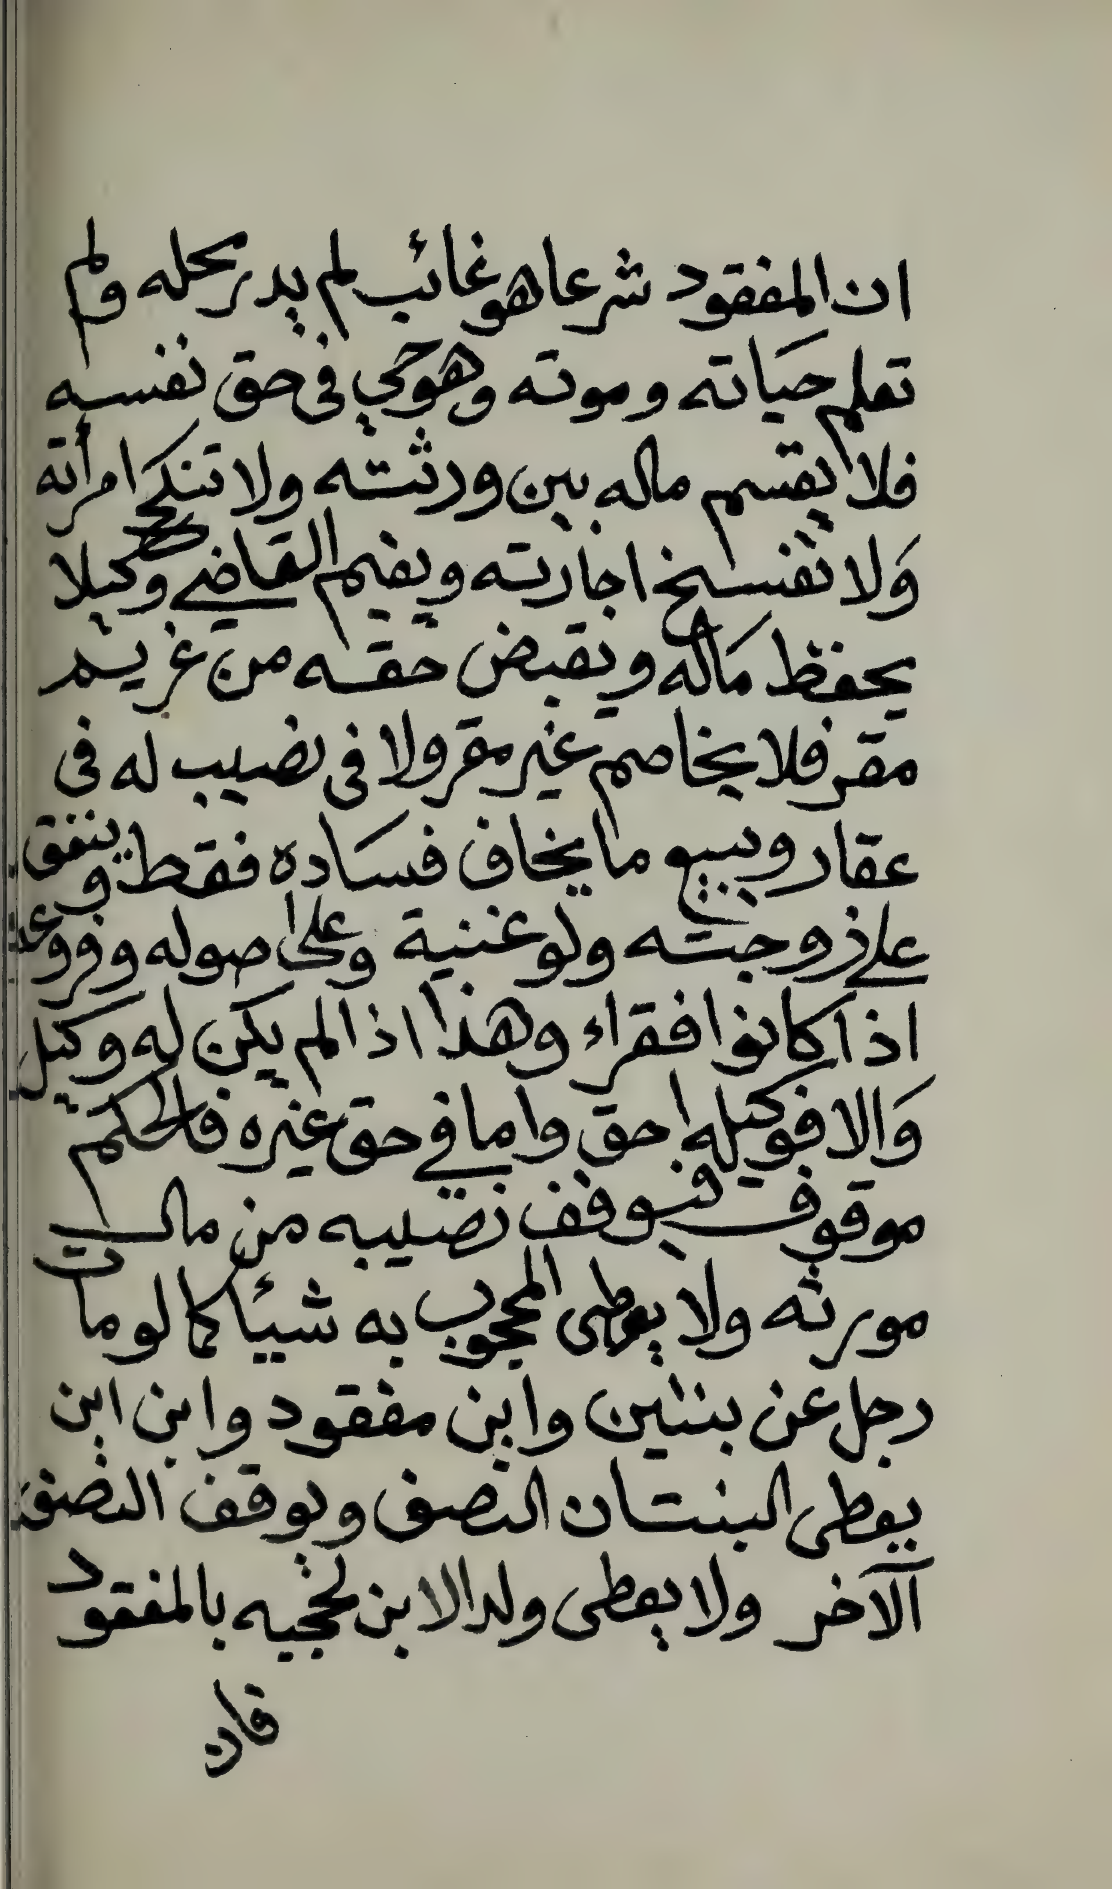 ان المفقود شرعا هو غائب لم يدر محله ولم
تعلم حياته وموته وهو حي في حق نفسه
فلا يقسم ماله بين ورثته ولا تنكح امرأته
ولا تفسخ اجارته ويقيم القاضي وكيلا
يحفظ ماله ويقبض حقه من غريم
مقر فلا يخاصم غير مقر ولا في نصيب له في
عقار ويبيع ما يخاف فساده فقط وينفق
على زوجته ولو غنية وعلى اصوله وفروعه
اذا كانوا فقراء وهذا اذا لم يكن له وكيل
والا فوكيله احق واما في حق غيره فالحكم
موقوف فيوقف نصيبه من مال
مورثه ولا يعطى المحجوب به شيئا كما لو مات
رجل عن بنتين وابن مفقود وابن ابن
يعطى البنتان النصف ويوقف النصف
الآخر ولا يعطى ولد الابن لحجبه بالمفقود
فان